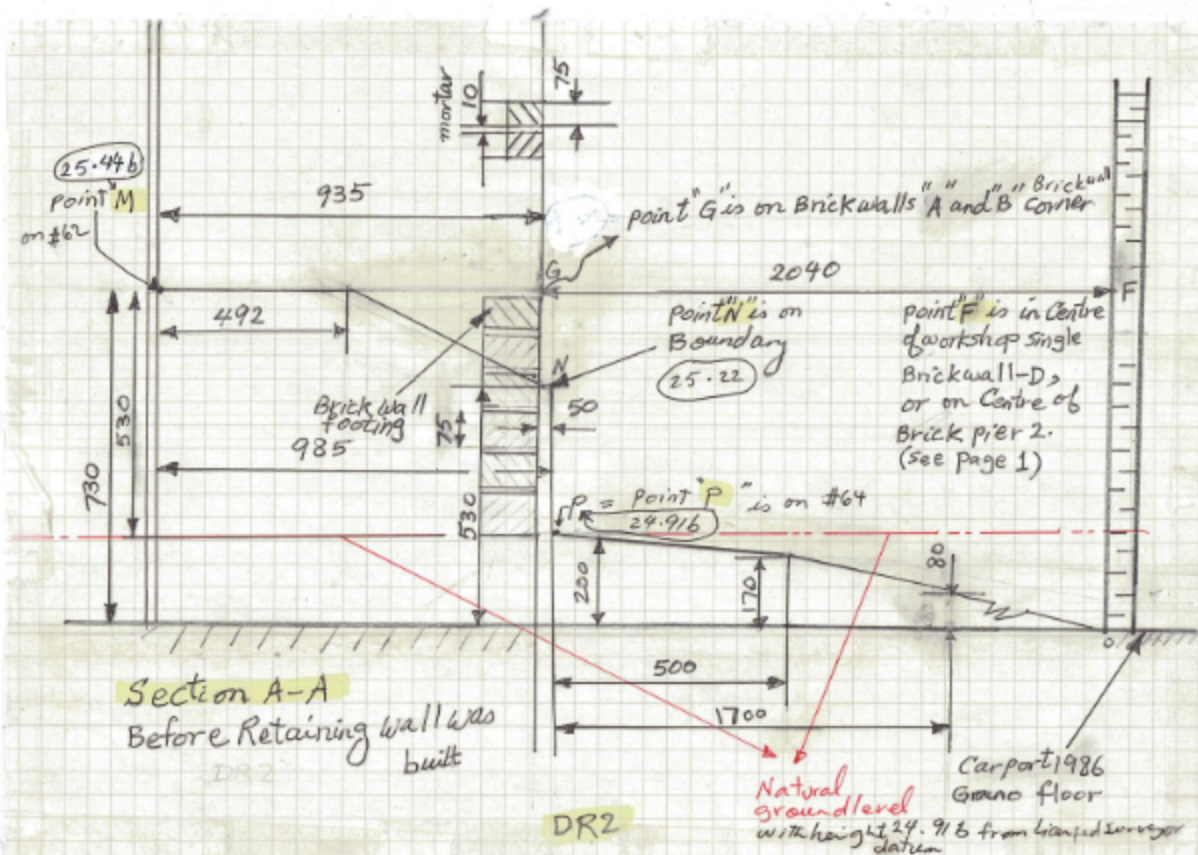 75
mortar
10
25.446
point "M"
on #62
935
point "G" is on Brickwalls "A" and "B" Brickwall
corner
G
2040
F
492
point "N" is on
Boundary
25.22
N
point "F" is in Centre
of workshop single
Brickwall-D,
or on Centre of
Brick pier 2.
(see page 1)
Brick wall
footing
75
50
985
530
730
530
P = Point "P" is on #64
24.916
200
170
80
500
1700
Section A-A
Before Retaining wall was
built
DR2
DR2
Natural
ground level
with height 24.916 from licensed surveyor
datum
Carport 1986
Grano floor